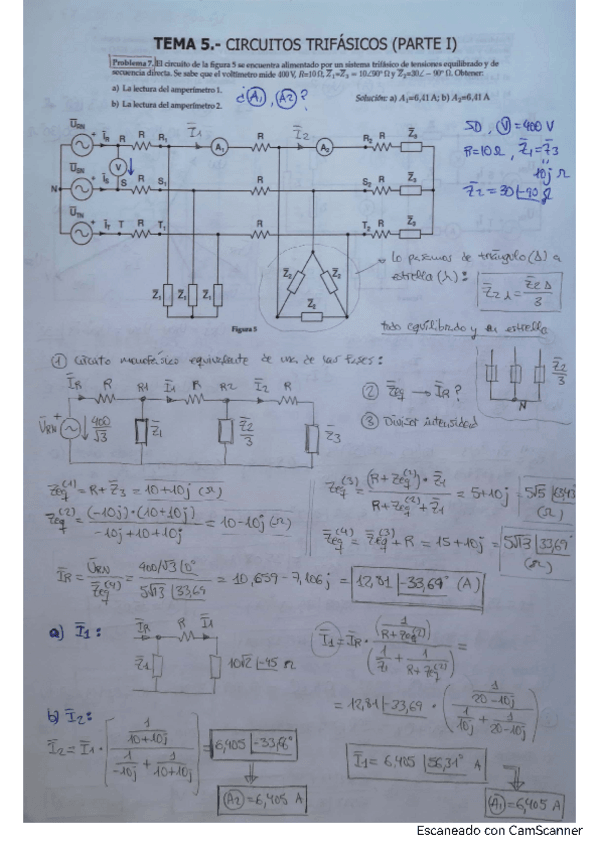 TEMA 5.- CIRCUITOS TRIFÁSICOS (PARTE I)
Problema 7. El circuito de la figura 5 se encuentra alimentado por un sistema trifásico de tensiones equilibrado y de
secuencia directa. Se sabe que el voltímetro mide 400 V, R=10 Ω, Z̅1=Z̅3 = 10∠90° Ω y Z̅2=30∠− 90° Ω. Obtener:
a) La lectura del amperímetro 1.
b) La lectura del amperímetro 2.
¿(A1), (A2)?
Solución: a) A1=6,41 A; b) A2=6,41 A
SD, (V) = 400 V
R=10 Ω, Z̅1=Z̅3
10j Ω
Z̅2 = 30∠-90 Ω
U̅RN + I̅R R R R1 I̅1 A1 R I̅2 A2 R2 R Z̅3
V
N U̅SN + I̅S S R S1 R S2 R Z̅3
U̅TN + I̅T T R T1 R T2 R Z̅3
Z̅1 Z̅1 Z̅1
Z̅2 Z̅2
Z̅2
Figura 5
lo pasamos de triángulo (Δ) a
estrella (⅄): Z̅2⅄ = Z̅2Δ/3
todo equilibrado y en estrella
Z̅2/3
N
① Circuito monofásico equivalente de una de las fases:
I̅R R R1 I̅1 R R2 I̅2 R
U̅RN + 400/√3 Z̅1 Z̅2/3 Z̅3
② Z̅eq → I̅R?
③ Divisor intensidad
Z̅eq(1) = R+Z̅3 = 10+10j (Ω)
Z̅eq(2) = (-10j)·(10+10j)/(-10j+10+10j) = 10-10j (Ω)
Z̅eq(3) = (R+Z̅eq(2))·Z̅1/(R+Z̅eq(2)+Z̅1) = 5+10j = 5√5 ∠63,43 (Ω)
Z̅eq(4) = Z̅eq(3)+R = 15+10j = 5√13 ∠33,69° (Ω)
I̅R = U̅RN/Z̅eq(4) = 400/√3 ∠0°/5√13 ∠33,69 = 10,659-7,106j = 12,81 ∠-33,69° (A)
a) I̅1:
I̅R R I̅1
Z̅1 10√2 ∠-45 Ω
I̅1 = I̅R · (1/(R+Z̅eq(2)))/(1/Z̅1 + 1/(R+Z̅eq(2))) =
= 12,81 ∠-33,69 · (1/(20-10j))/(1/10j + 1/(20-10j))
I̅1 = 6,405 ∠56,31°
(A1) = 6,405 A
b) I̅2:
I̅2 = I̅1 · (1/(10+10j))/(1/-10j + 1/(10+10j)) = 6,405 ∠-33,68°
(A2) = 6,405 A
Escaneado con CamScanner